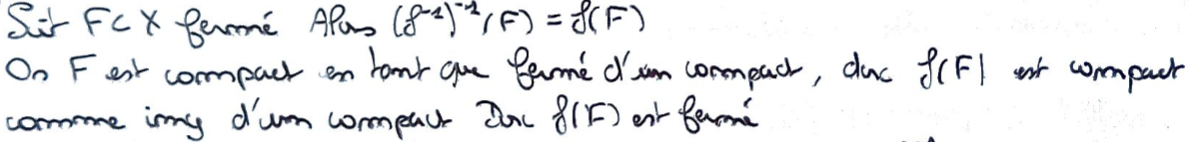 Soit F⊂X fermé Alors (f⁻¹)⁻¹(F) = f(F)
Or F est compact en tant que fermé d'un compact, donc f(F) est compact
comme img d'un compact Donc f(F) est fermé